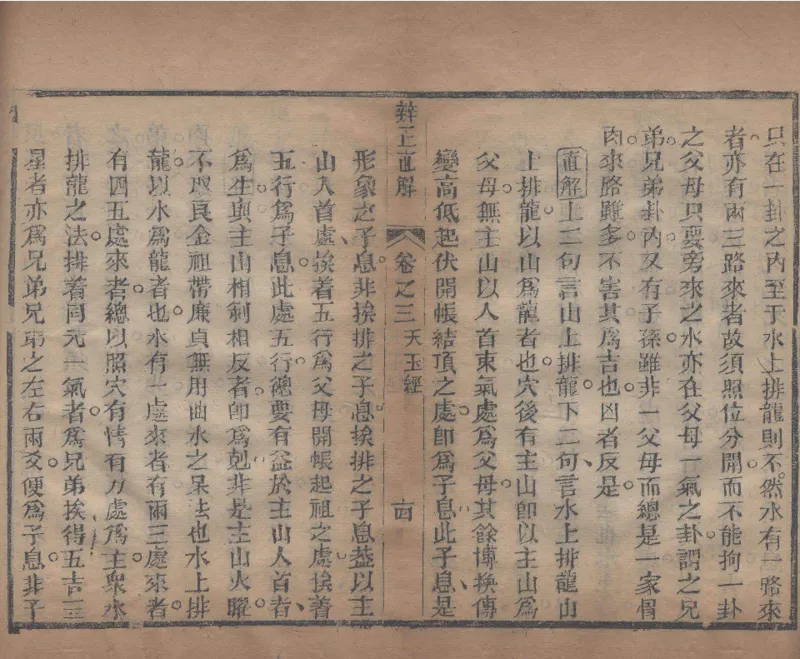 只在一卦之內至于水上排龍則不然水有一路來
者亦有兩三路來者故須照位分開而不能拘一卦
之父母只要旁來之水亦在父母一氣之卦謂之兄
弟兄弟卦內又有子孫雖非一父母而總是一家骨
肉來路雖多不害其爲吉也凶者反是
直解上二句言山上排龍下二句言水上排龍山
上排龍以山爲龍者也穴後有主山卽以主山爲
父母無主山以入首束氣處爲父母其餘博換傳
變高低起伏開帳結頂之處卽爲子息此子息是
辨正直解
卷之三 天玉經
十四
形象之子息非挨排之子息挨排之子息葢以主
山入首處挨着五行爲父母開帳起祖之處挨着
五行爲子息此處五行總要有益於主山入首者
爲生與主山相剋相反者卽爲剋非是主山火曜
不取艮金祖帶廉貞無用曲水之呆法也水上排
龍以水爲龍者也水有一處來者有兩三處來者
有四五處來者總以照穴有情有力處爲主衆水
排龍之法排着同元一氣者爲兄弟挨得五吉三
星者亦爲兄弟兄弟之左右兩爻便爲子息非子